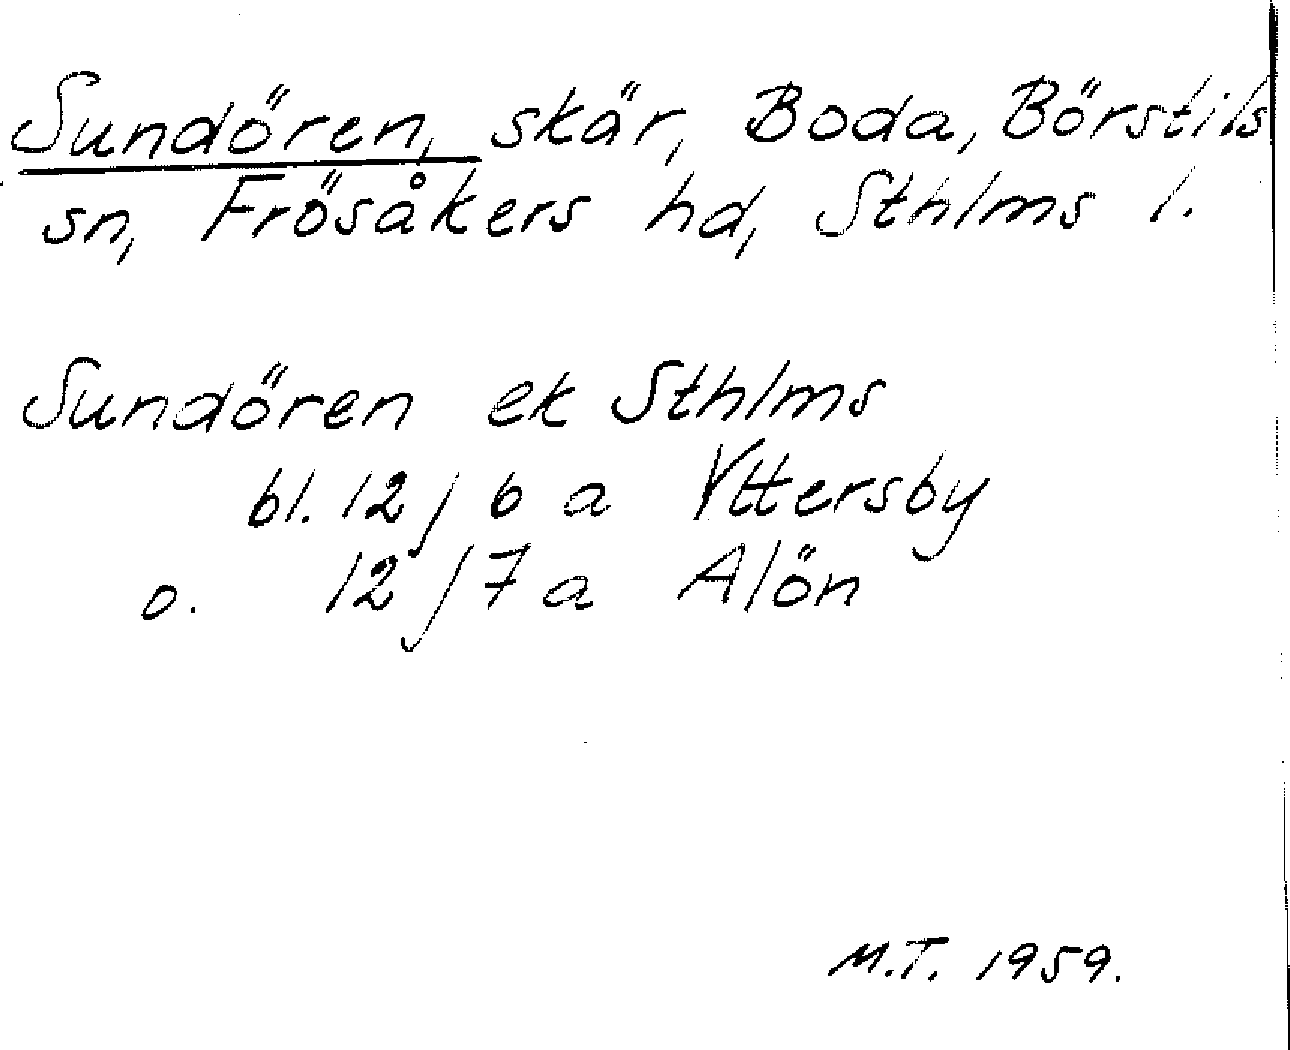 Sundören, skär, Boda, Börstils
sn, Frösåkers hd, Sthlms l.
Sundören ek Sthlms
bl. 12 j 6 a Yttersby
o. 12 j 7 a Alön
M.T. 1959.